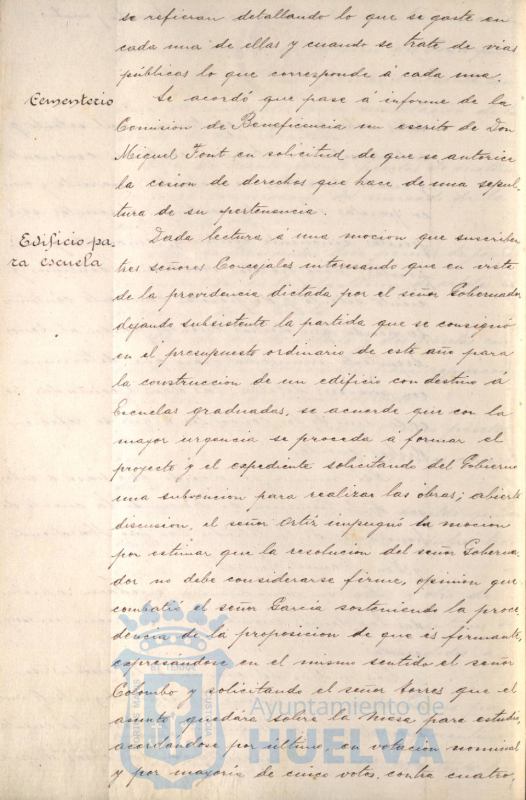 se refieran detallando lo que se gaste en
cada una de ellas y cuando se trate de vias
públicas lo que corresponde á cada una.
Cementerio
Se acordó que pase á informe de la
Comision de Beneficencia un escrito de Don
Miguel Font en solicitud de que se autorice
la cesion de derechos que hace de una sepul-
tura de su pertenencia.
Edificio pa-
ra escuela
Dada lectura á una mocion que suscriben
tres señores Concejales interesando que en vista
de la providencia dictada por el señor Gobernador
dejando subsistente la partida que se consignó
en el presupuesto ordinario de este año para
la construccion de un edificio con destino á
Escuelas graduadas, se acuerde que con la
mayor urgencia se proceda á formar el
proyecto y el expediente solicitando del Gobierno
una subvencion para realizar las obras; abierta
discusion, el señor Ortiz impugnó la mocion
por estimar que la resolucion del señor Goberna-
dor no debe considerarse firme, opinion que
combatió el señor García sosteniendo la proce-
dencia de la proposicion de que és firmante,
expresándose en el mismo sentido el señor
Colombo y solicitando el señor Torres que el
asunto quedára sobre la mesa para estudio,
acordándose por último, en votacion nominal
y por mayoría de cinco votos contra cuatro,
Ayuntamiento de
HUELVA